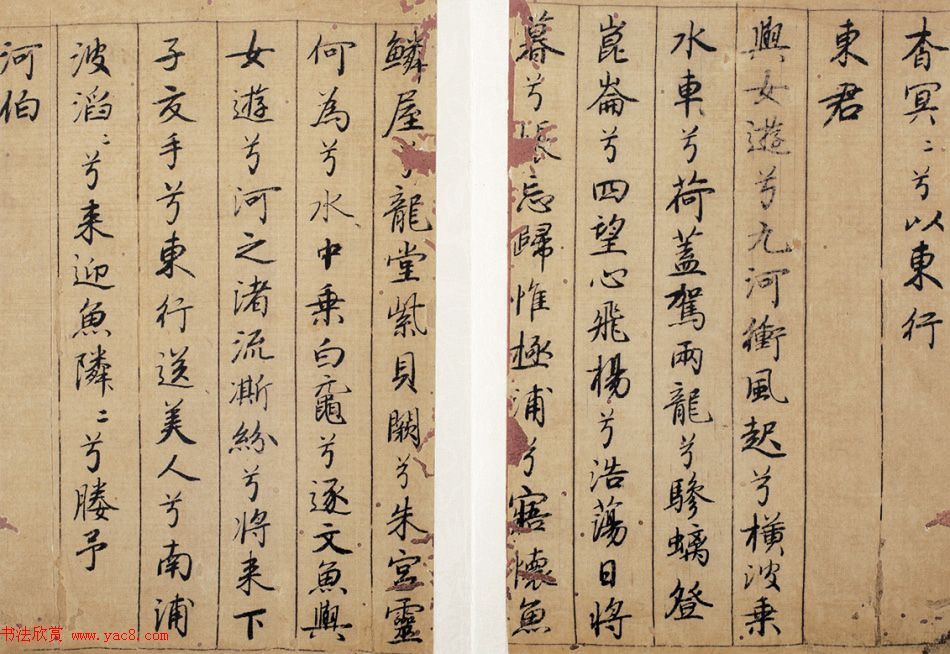 杳冥〻兮以東行
東君
興女遊兮九河衝風起兮橫波乗
水車兮荷蓋駕兩龍兮驂螭登
崑崙兮四望心飛楊兮浩蕩日將
暮兮悵忘歸惟極浦兮寤懷魚
鱗屋兮龍堂紫貝闕兮朱宮靈
何為兮水中乗白黿兮逐文魚興
女遊兮河之渚流凘紛兮將来下
子交手兮東行送美人兮南浦
波滔〻兮来迎魚隣〻兮媵予
河伯
书法欣赏 www.yac8.com